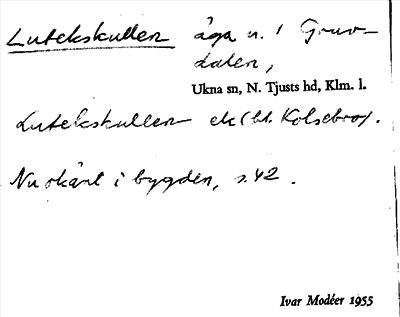 Lutekskullen äga n. i Gruv-
dalen,
Ukna sn, N. Tjusts hd, Klm. l.
Lutekskullen ek (bl. Kolsebro).
i bygden, s. 42.
Ivar Modéer 1955